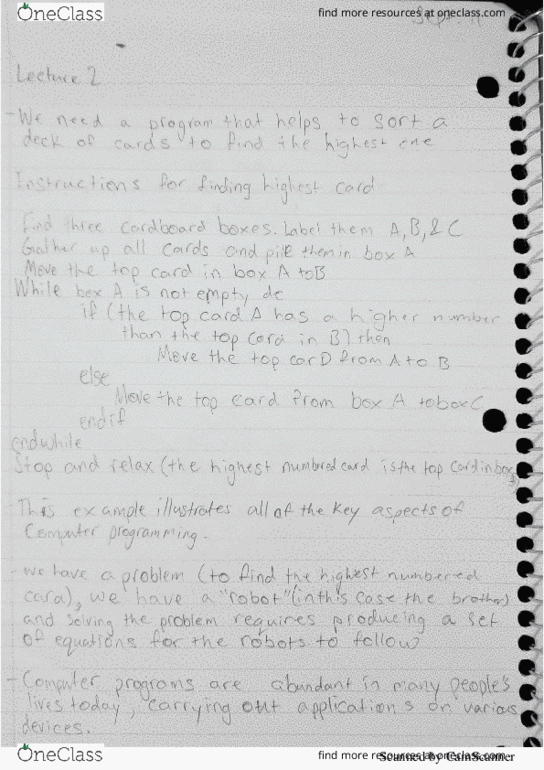 OneClass
find more resources at oneclass.com
Lecture 2
- We need a program that helps to sort a
deck of cards to find the highest one
Instructions for finding highest card
Find three cardboard boxes. Label them A, B, & C
Gather up all cards and pile them in box A
Move the top card in box A to B
While box A is not empty do
if (the top card A has a higher number
than the top card in B) then
Move the top carD from A to B
else
Move the top card from box A to box C
endif
endwhile
Stop and relax (the highest numbered card is the top card in box
- This example illustrates all of the key aspects of
Computer programming.
- we have a problem (to find the highest numbered
card), we have a "robot" (in this case the brother)
and solving the problem requires producing a set
of equations for the robots to follow
- Computer programs are abundant in many people's
lives today, carrying out applications on various
devices.
OneClass
find more resources at oneclass.com
Scanned by CamScanner